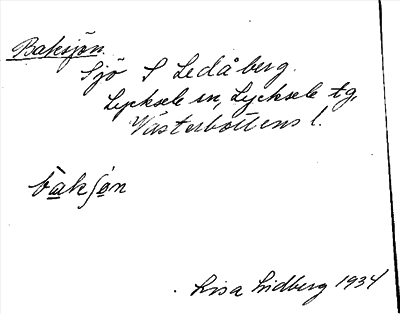 Baksjön.
Sjö S Ledåberg.
Lycksele sn, Lycksele tg,
Västerbottens l.
bakʃön
Lisa Lidberg 1934